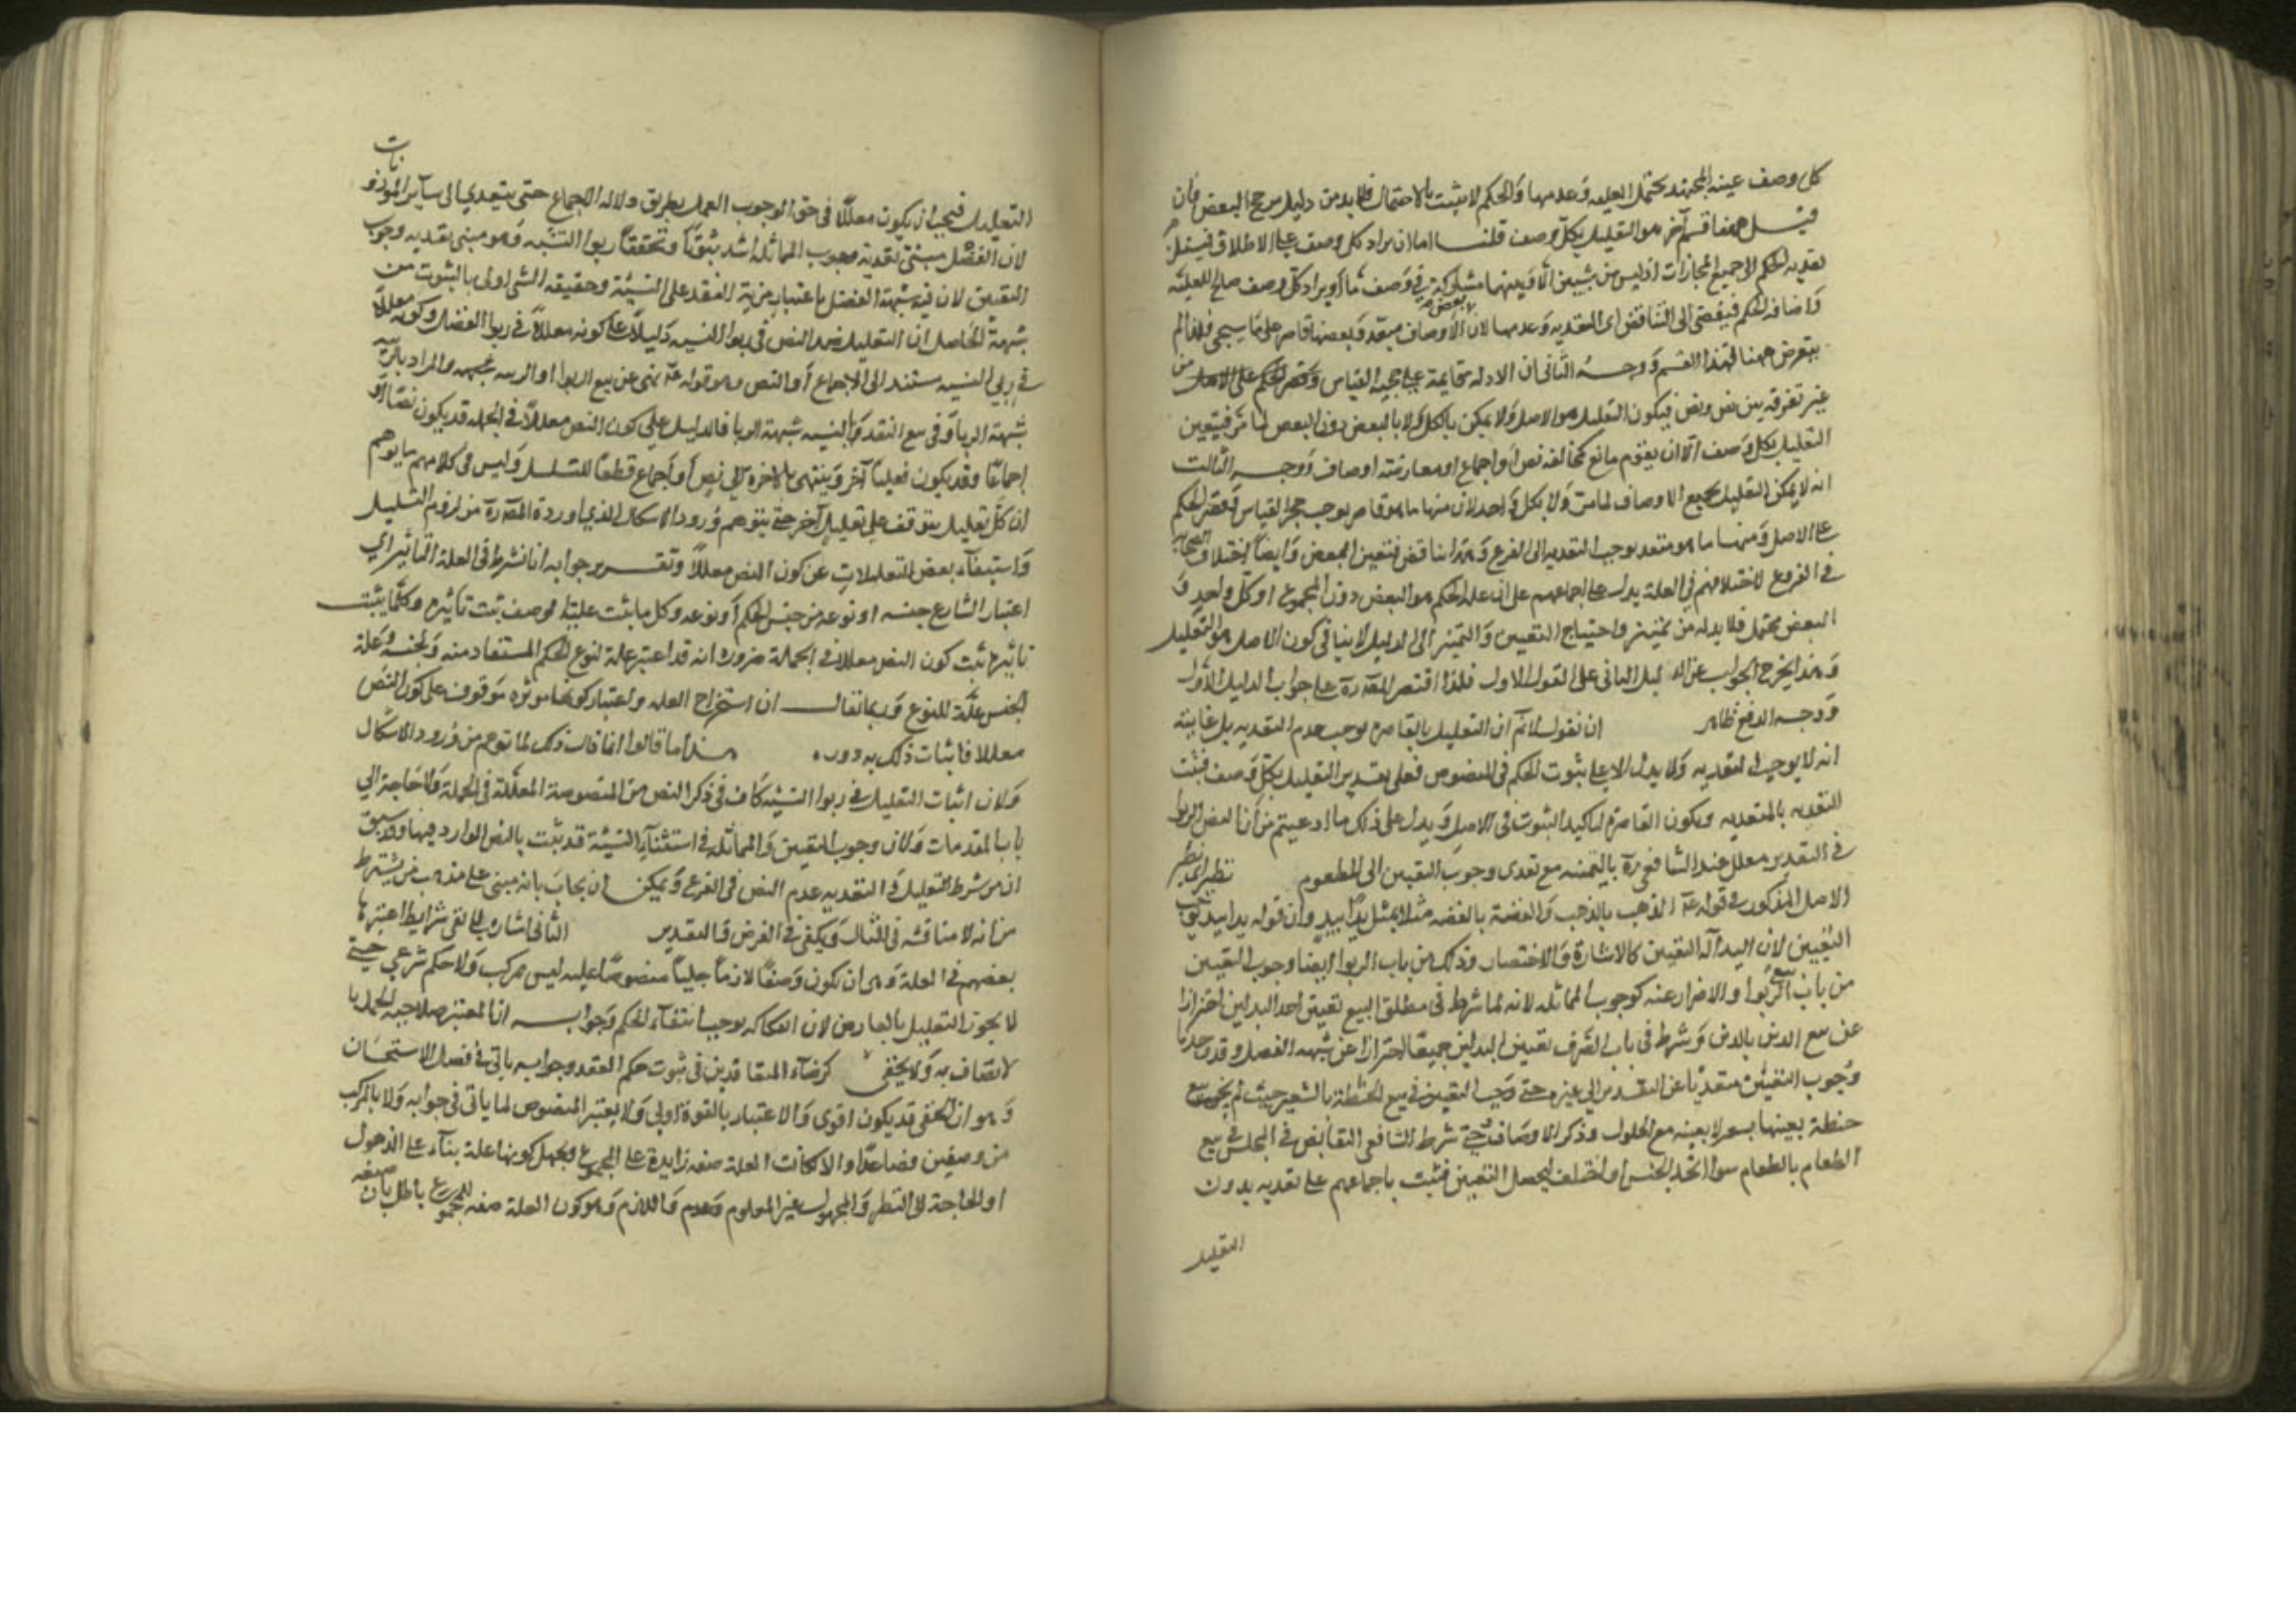 كل وصف عينه المجتهد يحتمل العليه وعدمها والحكم لا يثبت بالاحتمال فلا بد من دليل يرجح البعض فان
قيل ههنا قسم آخر هو التعليل بكل وصف قلنا اما ان يراد كل وصف على الاطلاق فيستلزم
تعديه الحكم الى جميع المجازات اذ ليس من شيئين الا وبينهما مشاركة في وصف ما او يراد كل وصف صالح للعلية
واضافه الحكم فيفضى الى التناقض اى التعديه وعدمها لان بعض الاوصاف متعد وبعضها قاصر على ما سيجي فلذا لم
يتعرض ههنا لهذا القسم ووجه الثانى ان الادله قايمة على حجية القياس من
غير تفرقه بين نص ونص فيكون التعليل هو الاصل ولا يمكن بالكل ولا بالبعض دون البعض لما مر فيتعين
التعليل بكل وصف الا ان يقوم مانع كمخالفه نص او اجماع او معارضة اوصاف ووجه الثالث
انه لا يمكن التعليل بجميع الاوصاف لما مر ولا بكل واحد لان منها ما هو قاصر يوجب حجر القياس وقصر الحكم
على الاصل ومنها ما هو متعد يوجب التعديه الى الفرع وهذا تناقض فتعين البعض وايضا اختلاف الصحابه
في الفروع لاختلافهم في العلة يدل على اجماعهم على ان علة الحكم هو البعض دون المجموع او كل واحد و
البعض محتمل فلا بد له من تمييز واحتياج التعيين والتميز الى الدليل لا ينافى كون الاصل هو التعليل
وهذا يخرج الجواب عن الدليل الثانى على القول الاول فلذا اقتصر المص ره على جواب الدليل الاول
ووجه الدفع ظاهر ان نقول لا نم ان التعليل بالقاصره يوجب عدم التعديه بل غايته
انه لا يوجب التعديه ولا يدل الا على ثبوت الحكم في المنصوص فعلى تقدير التعليل بكل وصف فيثبت
التعديه بالمتعديه ويكون القاصره لتاكيد الثبوت في الاصل ويدل على ذلك ما ادعيتم من ان نص الربوا
في النقدين معلل عند الشافعى ره بالثمنيه مع تعدى وجوب التعيين الى المطعوم نظيره
الاصل المذكور في قوله عم الذهب بالذهب والفضة بالفضه مثلا بمثل يدا بيد وان قوله يدا بيد يوجب
التعيين لان اليد آلة التعيين كالاشارة والاختصار وذلك من باب الربوا ايضا وجوب التعيين
من باب الربوا والاحترار عنه كوجوب المماثله لانه لما شرط في مطلق البيع تعيين احد البدلين احترازا
عن بيع الدين بالدين وشرط في باب الصرف تعيين البدلين جميعا احترازا عن شبهه الفضل وقد وجدنا
وجوب التعيين متعديا عن النقدين الى غيره حتى وجب التعيين في بيع الحنطة بالشعير حيث لم يجز بيع
حنطة بعينها بشعير لا بعينه مع الحلول وذكر الاوصاف وحتى شرط الشافعى التقابض في المجلس في بيع
الطعام بالطعام سوا اتحد الجنس او اختلف ليحصل التعيين فثبت باجماعهم على تعديه بدون
التعليل
التعليل فيجب ان يكون معللا في حق الوجوب العمل بطريق دلاله الاجماع حتى يتعدي الى ساير الموزونات
لان الفضل مبنى تعديه وجوب المماثله اشد ثبوتا وتحققا ربوا النسيه وهو مبنى تعديه وجوب
التعيين لان فيه شبهة الفضل باعتبار مزية النقد على النسيئة وحقيقه الشى اولى بالثبوت من
شبهته الحاصل ان التعليل في ربوا النسيه دليلا على كونه معللا في ربوا الفضل وكونه معللا
في ربى النسيه مستند الى الاجماع او النص وهو قوله عم نهى عن بيع الربوا او الريبه والمراد بالريبه
شبهة الربا وفى بيع النقد بالنسيه شبهة الربا فالدليل على كون النص معللا في الجمله قد يكون نصا او
اجماعا وقد يكون تعليلا آخر وينتهى بالاخره الي نص او اجماع قطعا للتسلسل وليس في كلامهم ما يوهم
ان كل تعليل يتوقف على تعليل آخر حتى يتوهم ورود الاشكال الذي اورده المص ره من لزوم التسلسل
واستغناء بعض التعليلات عن كون النص معللا وتقرير جوابه انا نشرط في العلة التاثير اي
اعتبار الشارع جنسه او نوعه من جنس الحكم او نوعه وكل ما ثبت علية الوصف ثبت تاثيره وكلما يثبت
تاثيره ثبت كون النص معللا في الجملة ضرورة انه قد اعتبر علة لنوع الحكم المستفاد منه ولجنسه وعلة
الجنس علة للنوع وربما يقال ان استخراج العله واعتبار كونها موثره موقوف على كون النص
معللا فاثبات ذلك به دور. هذا ما قالوا انما قال ذلك لما توهم من ورود الاشكال
ولان اثبات التعليل في ربوا النسيئه كاف في ذكر النص من المنصوصة المعللة في الجملة ولا حاجة الى
باب المقدمات ولان وجوب التعيين والمماثله في استثناء النسيئة قد ثبت بالنص الوارد فيها وقد سبق
ان من شرط التعليل في التعديه عدم النص في الفرع ويمكن ان يجاب بانه مبنى على مذهب من يشترط
من انه لا مناقشه في المثال ويكفى في الفرض والتقدير الثانى اشاره الى نفى شرايط اعتبرها
بعضهم في العلة وهى ان تكون وصفا لازما جليا منصوصا عليه ليس مركب ولا حكم شرعي حتى
لا يجوز التعليل بالعارض لان انفكاكه يوجب انتفاء الحكم وجوابه ان المعتبر صلاحية المحل
لاتصاف به ولا يخفى كرضاء المتعاقدين في ثبوت حكم العقد وجوابه ياتى في فصل الاستحسان
وهو ان الخفى قد يكون اقوى والاعتبار بالقوة اولى ولا يغير المنصوص لما ياتى في جوابه ولا بالمركب
من وصفين فصاعدا والا لكانت العلة صفه زايدة على المجموع ويجهل كونها علة بناء على الذهول
او الحاجة الى النظر والمجهول غير المعلوم وعدم واللازم وهو كون العلة صفه للمجموع باطل بان صفه